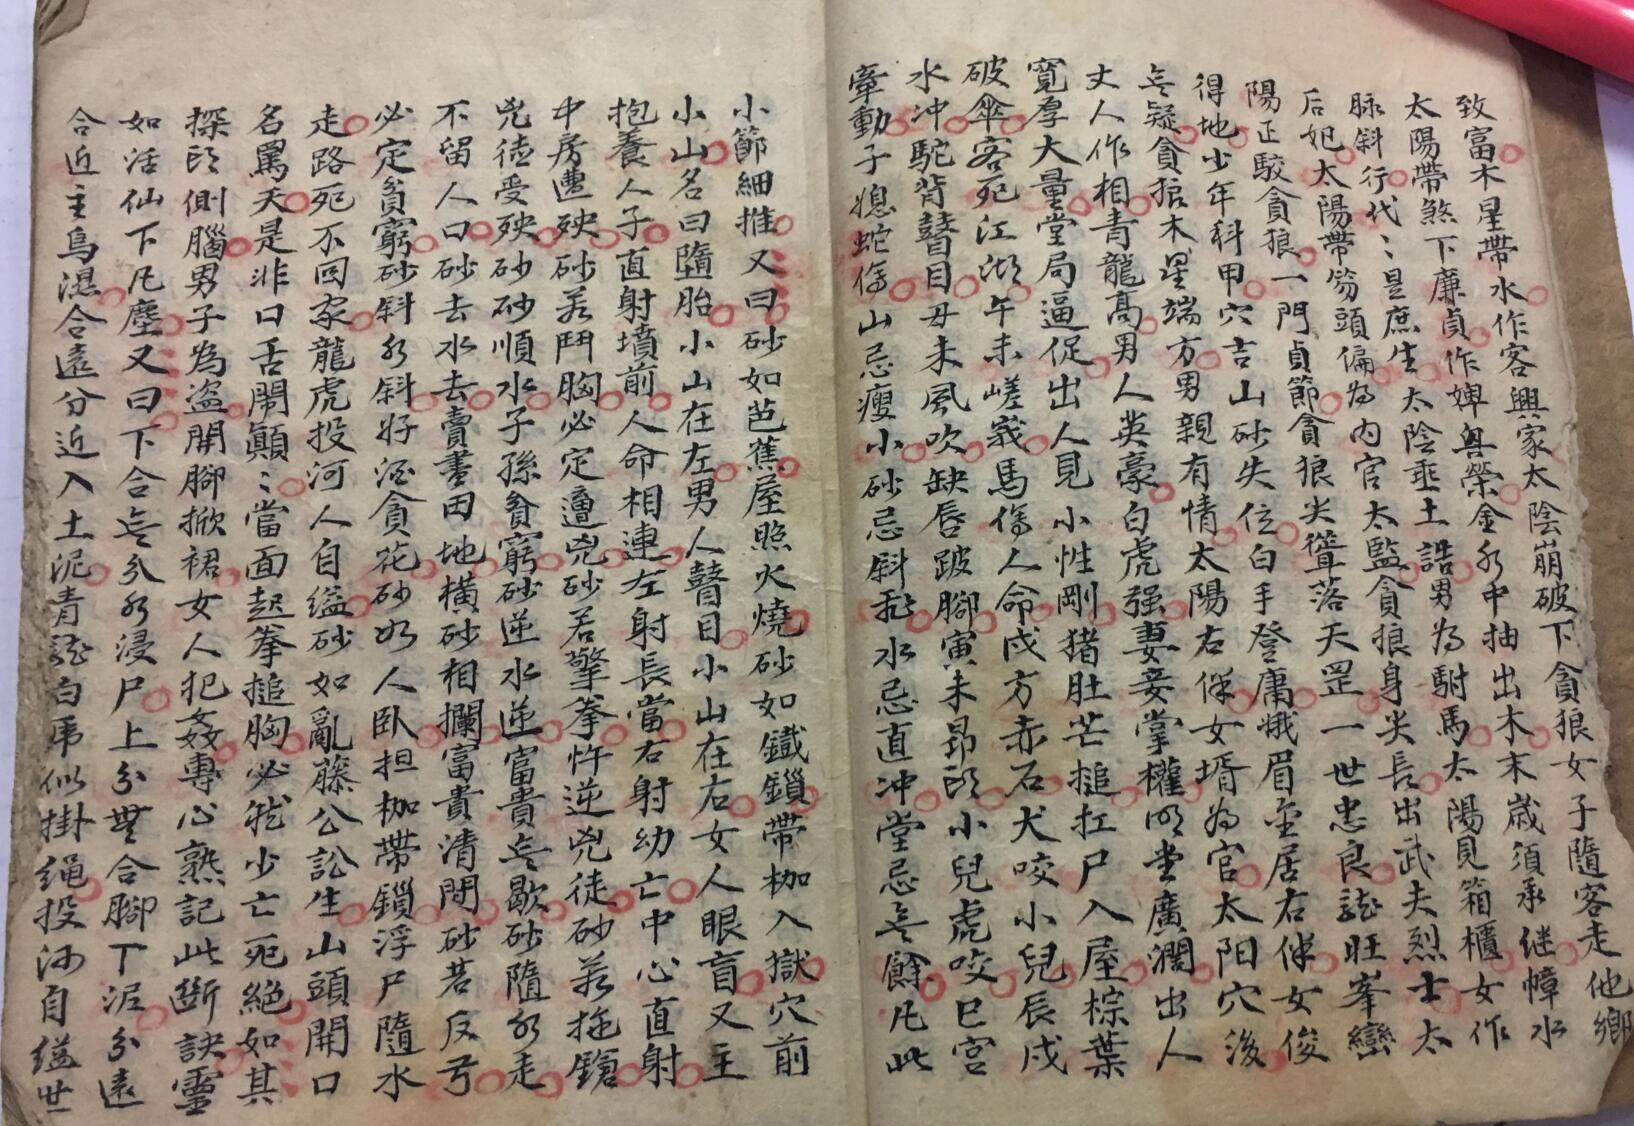 致富木星帶水作客興家太陰崩破下貪狼女子隨客走他鄉
太陽帶煞下廉貞作婢粤榮金水中抽出木末歲須承继幛水
脉斜行代々是庶生太陰垂土誥男為駙馬太陽見箱櫃女作
后妃太陽帶笏頭偏為内官太監貪狼身尖長出武夫烈士太
陽正駁貪狼一門貞節貪狼尖聳落天罡一世忠良龍旺峯巒
得地少年科甲穴吉山砂失位白手登庸蛾眉垩居右伴女俊
无疑貪狼木星端方男親有情太陽右伴女壻为官太阳穴後
丈人作相青龍高男人英豪白虎强妻妾掌權明堂廣濶出人
寬厚大量堂局逼促出人見小性剛猪肚芒搥扛尸入屋棕葉
破傘客死江湖午未嵯峩馬傷人命戌方赤石犬咬小兒辰戌
水冲駝背瞽目丑未風吹缺唇跛腳寅未昂頭小兒虎咬巳宫
牽動子媳蛇傷山忌瘦小砂忌斜飛水忌直冲堂忌无餘凡此
小節細推又曰砂如芭蕉屋照火燒砂如鐵鎖帶枷入獄穴前
小山名曰墮胎小山在左男人瞽目小山在右女人眼盲又主
抱養人子直射墳前人命相連左射長當右射幼亡中心直射
中房遭殃砂若鬥胸必定遭兇砂若擎拳忤逆兇徒砂若拖鎗
兇徒受殃砂砂順水子孫貧窮砂逆水逆富貴无歇砂隨水走
不留人口砂去水去賣盡田地横砂相攔富貴清閒砂若反弓
必定貧窮砂斜水斜好酒貪花砂如人臥担枷帶鎖浮尸隨水
走路死不回家龍虎投河人自縊砂如亂藤公訟生山頭開口
名罵天是非口舌鬧顛々當面起拳搥胸必然少亡死絕如其
探頭側腦男子為盗開腳掀裙女人犯姦專心熟記此斷訣靈
如活仙下凡塵又曰下合无分水浸尸上分無合腳下泥分遠
合近主烏濕合遠分近入土泥青龍白虎似掛绳投河自縊世